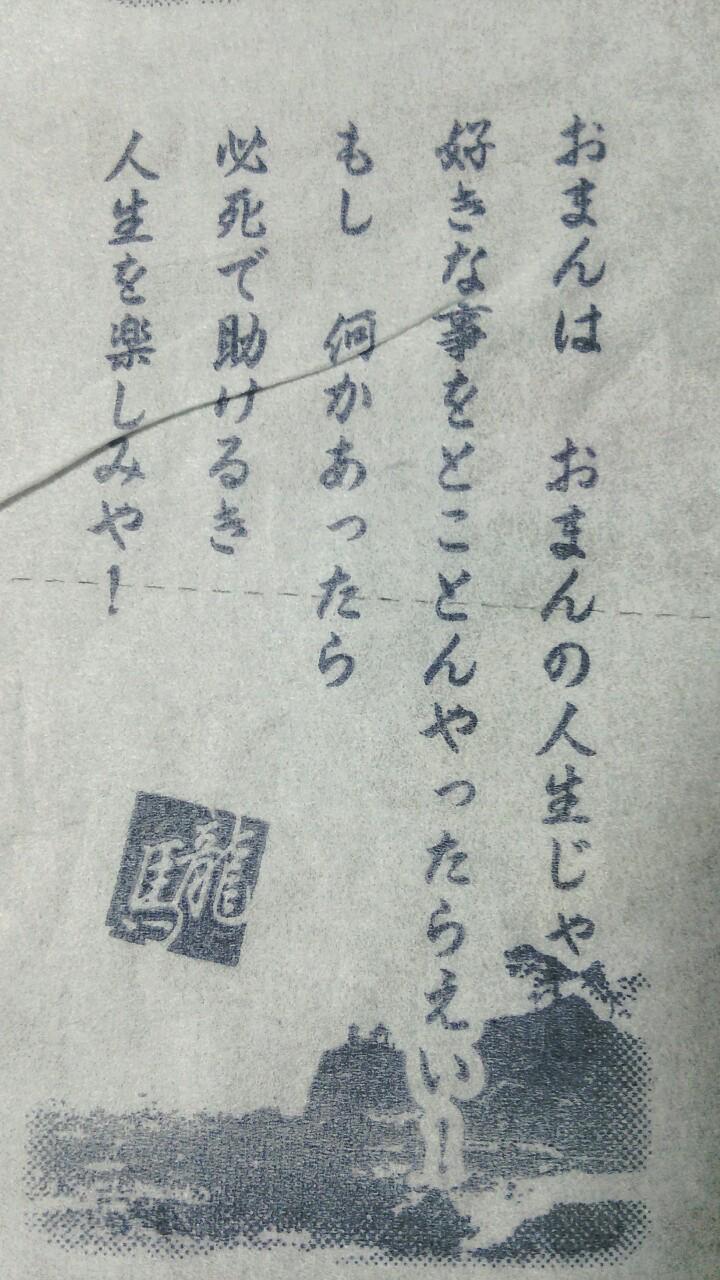 おまんは　おまんの人生じゃ
好きな事をとことんやったらえい！
もし　何かあったら
必死で助けるき
人生を楽しみや！
龍馬